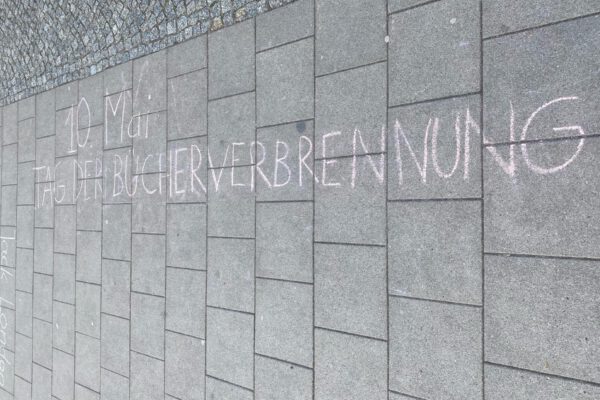 10. Mai
TAG DER BÜCHERVERBRENNUNG